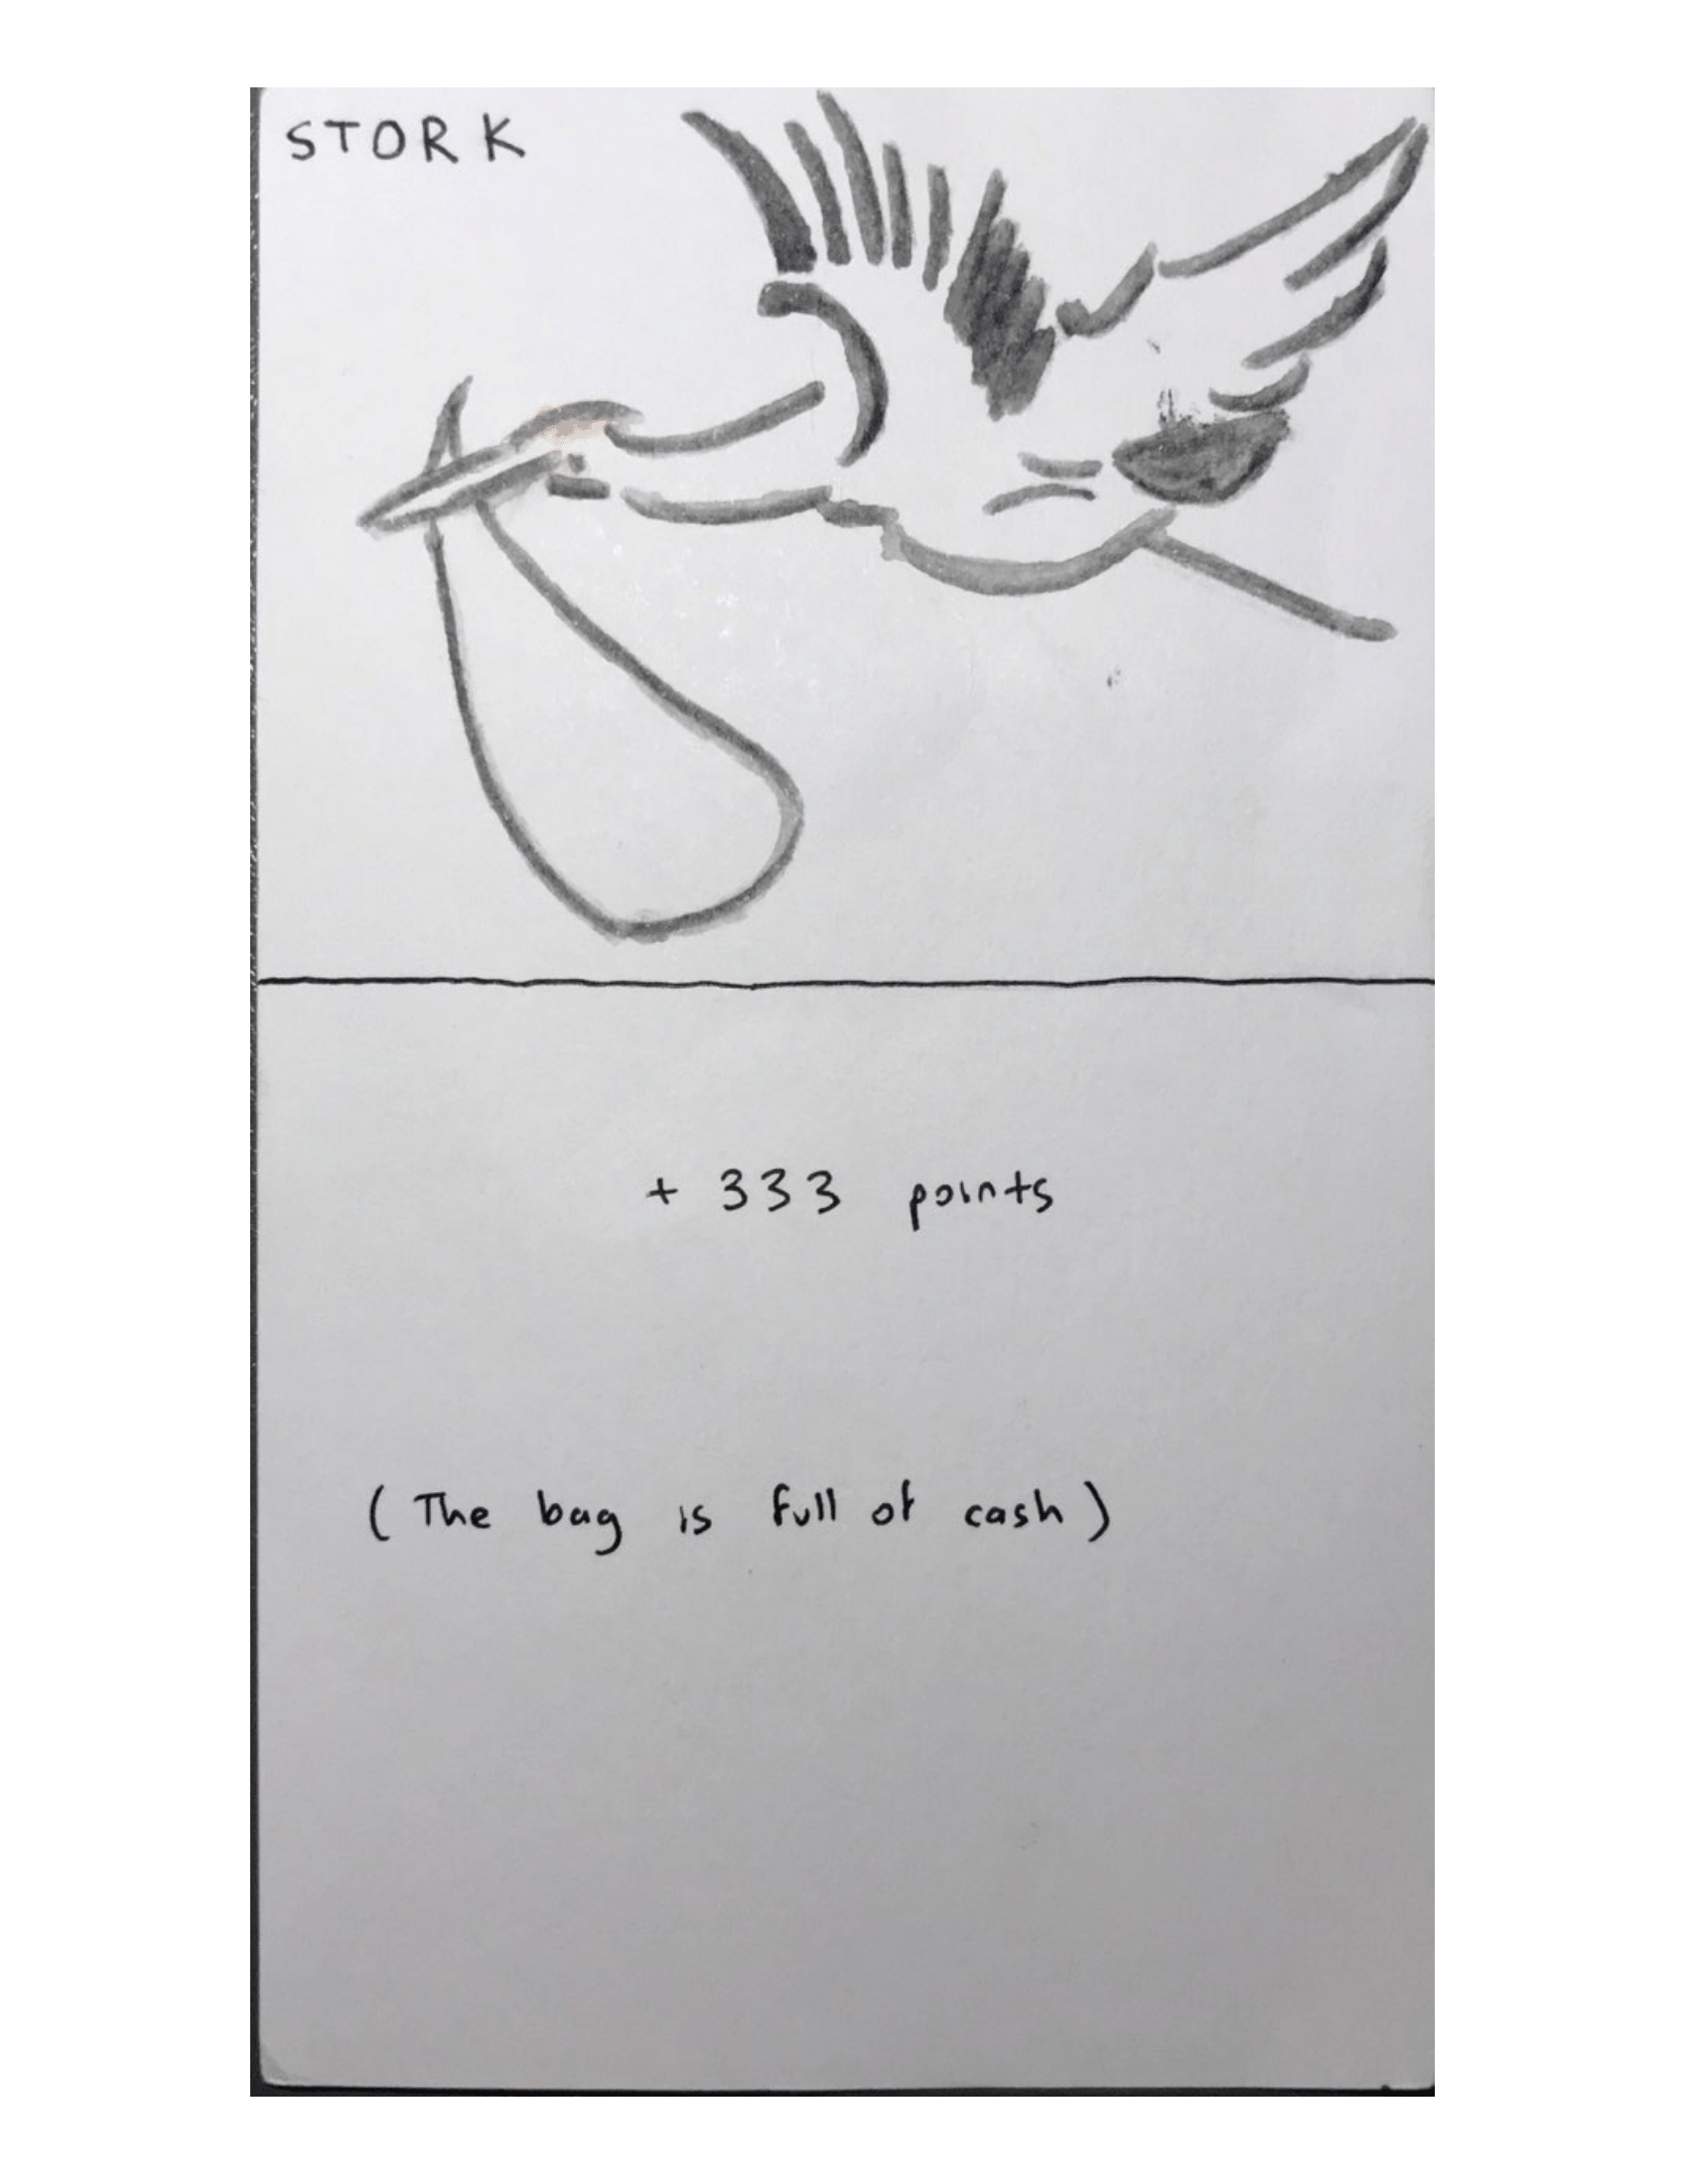 STORK
+ 333 points
(The bag is full of cash)